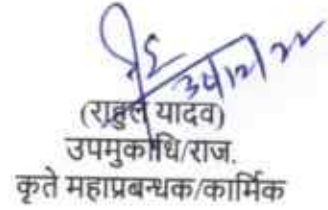 30/12/22
(राहुल यादव)
उपमुकाधि/राज.
कृते महाप्रबन्धक/कार्मिक